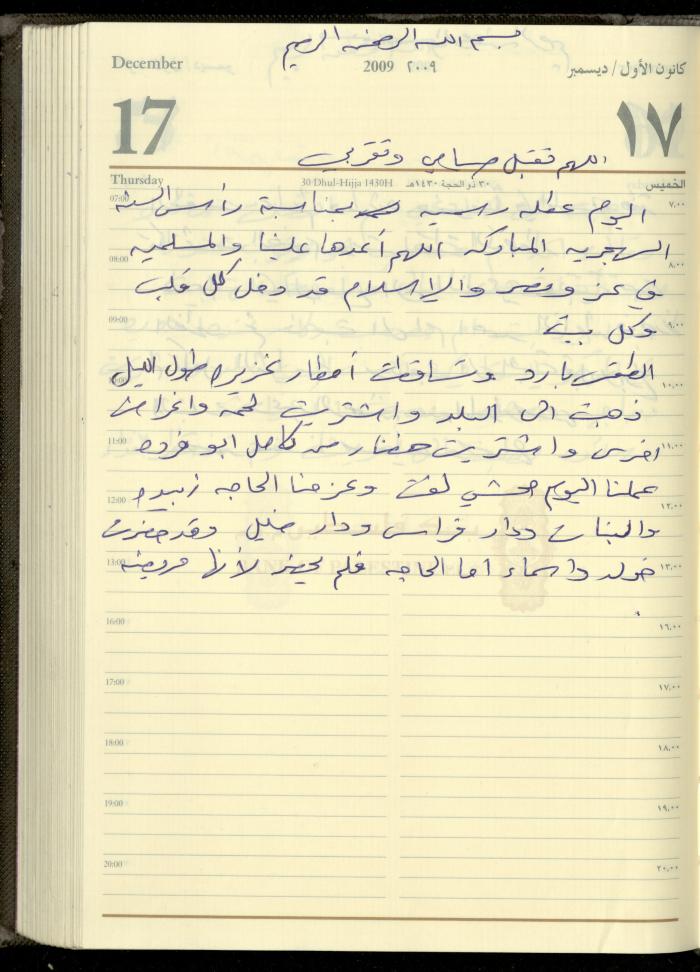 بسم الله الرحمن الرحيم
December 2009 ٢٠٠٩ كانون الأول / ديسمبر
17 ١٧
اللهم تقبل صيامي وتقربي
Thursday 30 Dhul-Hijja 1430H ٣٠ ذو الحجة ١٤٣٠هـ الخميس
07:00 اليوم عطله رسميه بمناسبة رأس السنه ٧,٠٠
الهجريه المباركه اللهم أعدها علينا والمسلميه
08:00 ٨,٠٠
في عز ونصر والإسلام قد دخل كل قلب
09:00 وكل بيت ٩,٠٠
الطقس بارد وتساقطت أمطار غزيره طول الليل
10:00 ١٠,٠٠
ذهبت الى البلد واشتريت لحمة واغراض
11:00 اخرى واشتريت خضار من كامل ابو فروه ١١,٠٠
عملنا اليوم محشي لفت وعزمنا الحاجه زبيده
12:00 ١٢,٠٠
والبنات ودار فراس ودار خليل وقد حضرت
13:00 خولد واسماء اما الحاجه فلم تحضر لأنها مريضه ١٣,٠٠
16:00 ١٦,٠٠
17:00 ١٧,٠٠
18:00 ١٨,٠٠
19:00 ١٩,٠٠
20:00 ٢٠,٠٠